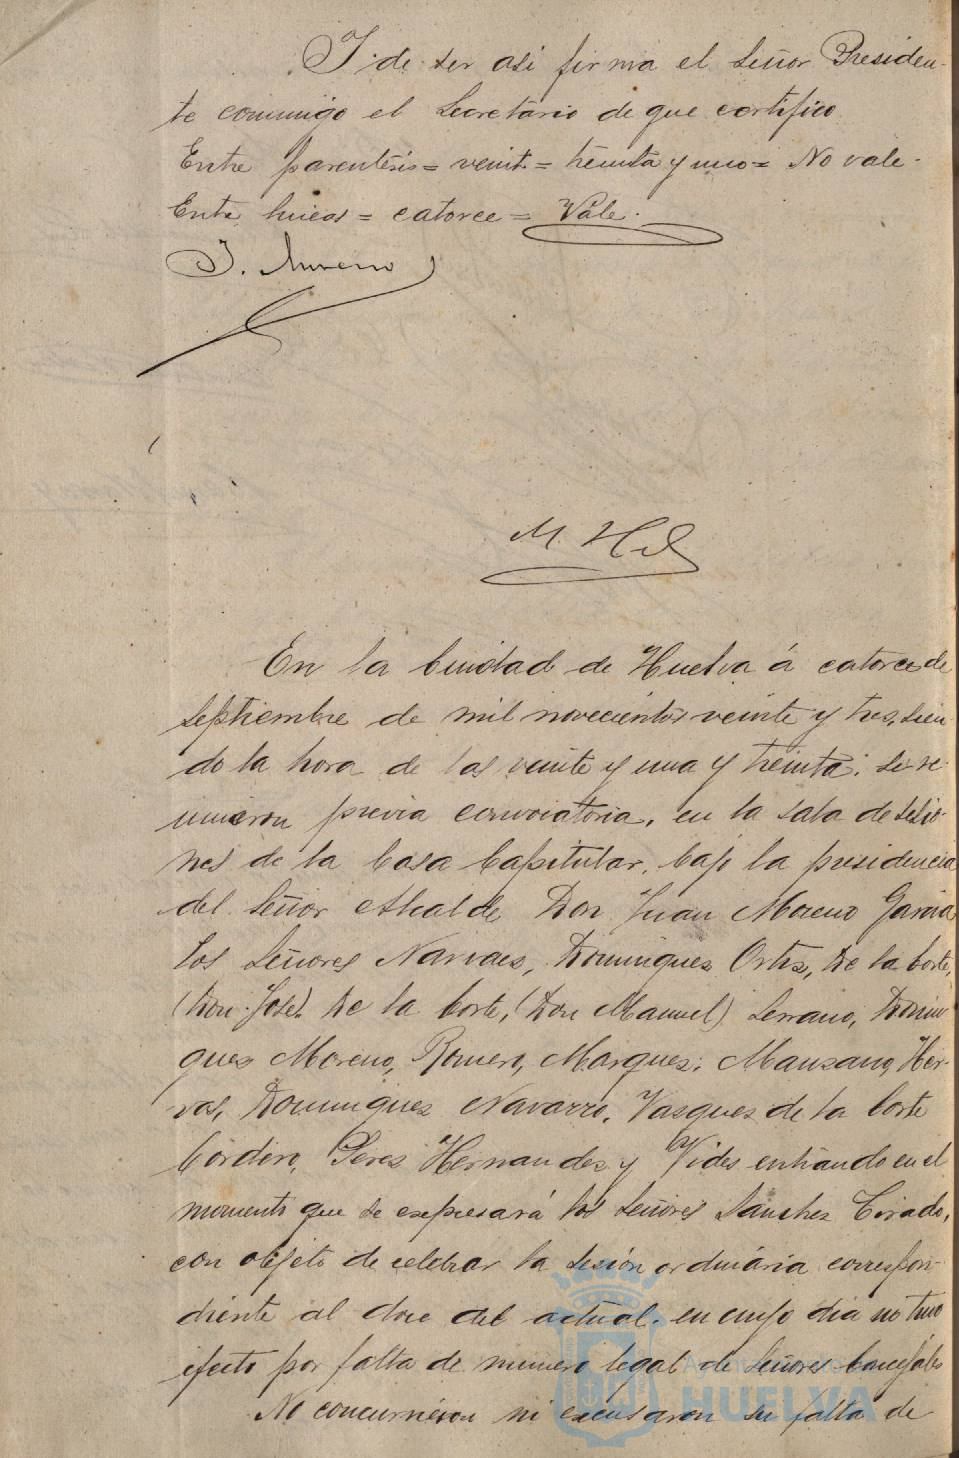 Y de ser asi firma el Señor Presiden-
te conmigo el Secretario de que certifico
Entre parentesis = veint. = treinta y uno = No vale.
Entre lineas = catorce = Vale.
J. Moreno
En la Ciudad de Huelva á catorce de
Septiembre de mil novecientos veinte y tres, sien-
do la hora de las veinte y una y treinta: se re-
unieron previa convocatoria, en la sala de sesio-
nes de la Casa Capitular, bajo la presidencia
del Señor Alcalde Don Juan Moreno Garcia
los Señores Narvaes, Domingues Ortis, De la Corte,
(Don José). De la Corte, (Don Manuel) Serrano, Domin-
gues Moreno, Romero, Marques, Manzano, Her-
vas, Domingues Navarro, Vasques de la Corte
Cordero, Peres Hernandez y Vides entrando en el
momento que se expresará los Señores Sanchez Tirado,
con objeto de celebrar la sesión ordinária correspon-
diente al doce del actual, en cuyo dia no tuvo
efecto por falta de número legal de Señores Concejales
No concurrieron ni excusaron su falta de
HUELVA